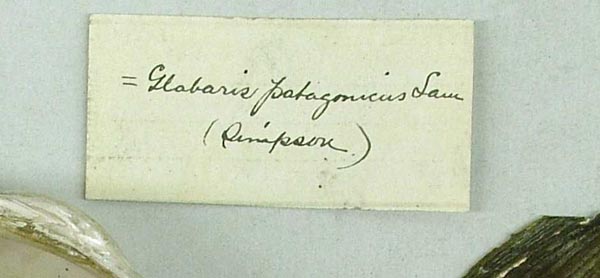 = Glabaris patagonicus Lam
(Simpson.)